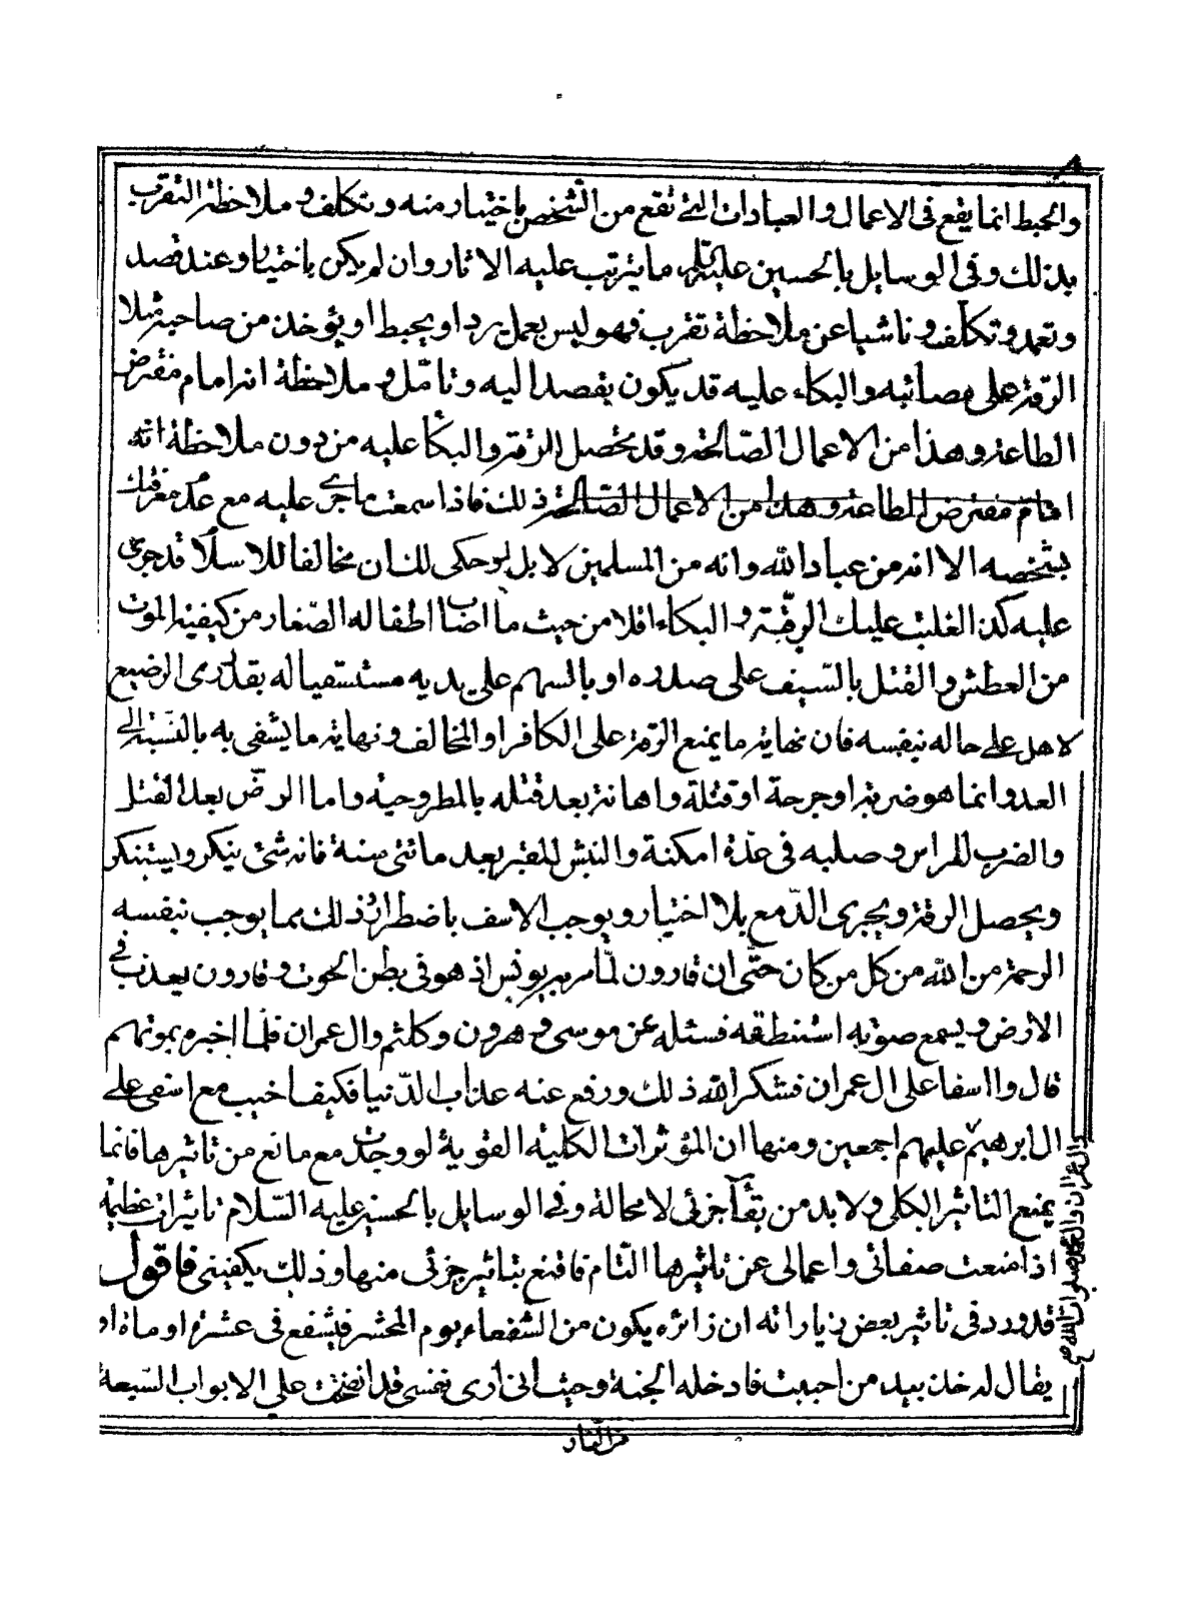 ٨
والحبط انما يقع فى الاعمال والعبادات التى تقع من الشخص باختيار منه وتكلف وملاحظة التقرب
بذلك وفى الوسايل بالحسين عليه السلام ما يترتب عليه الاثار وان لم يكن باختيار وعند قصد
وتعمد وتكلف وناشيا عن ملاحظة تقرب فهو ليس بعمل يرد او يحبط او يؤخذ من صاحبه مثلا
الرقة على مصائبه والبكاء عليه قد يكون بقصد اليه وتامّل وملاحظة انه امام مفترض
الطاعة وهذا من الاعمال الصّالحة وقد يحصل الرقة والبكا عليه من دون ملاحظة انه
امام مفترض الطاعة وهذا من الاعمال الصالحة ذلك فاذا سمعت ما جرى عليه مع عدم معرفتك
بشخصه الا انه من عباد الله وانه من المسلمين لا بل لو حكى لك ان مخالفا للاسلام قد جرى
عليه كذا لغلبت عليك الرقّة والبكاء افلا من حيث ما اصاب اطفاله الصّغار من كيفية الموت
من العطش والقتل بالسّيف على صدره او بالسهم على يديه مستسقيا له بقدر رى الرضيع
لا هل على حاله نبفسه فان نهاية ما يمنع الرقة على الكافر او المخالف ونهاية ما يشفى به بالنّسبة الى
العدو انما هو ضربة او جرحة او قتلة واهانة بعد قتله بالمطروحية واما الرضّ بعد القتل
والضرب للراس وصلبه فى عدّة امكنة والنبش للقبر بعد مائتى سنة فانه شئ ينكر ويستنكر
ويحصل الرقة ويجرى الدّمع بلا اختيار ويوجب الاسف باضطرار وذلك مما يوجب نبفسه
الرحمة من الله من كل من كان حتّى ان قارون لمّا مر به يونس اذ هو فى بطن الحوت وقارون يعذب فى
الارض ويسمع صوته استنطقه فسئله عن موسى وهرون وكلثم وال عمران فلمّا اخبره بموتهم
قال وااسفا على ال عمران فشكر الله ذلك ورفع عنه عذاب الدّنيا فكيف اخيب مع اسفى على
ال ابرهيم عليهم اجمعين ومنها ان المؤثرات الكلية القوية لو وجدت مع مانع من تاثيرها فانما
يمنع التاثير الكلى ولا بد من بقاء جزئى لا محالة وفى الوسايل بالحسين عليه السّلام تاثيرات عظيمة
اذا منعت صفاتى واعمالى عن تاثيرها التّام فاقنع بتاثير جزئى منها وذلك يكفينى فاقول
قد ورد فى تاثير بعض زياراته ان زائره يكون من الشّفعاء يوم المحشر فيشفع فى عشرة او ماة او
يقال له خذ بيد من احببت فادخله الجنة وحيث انى ارى نفسى قد انفتحت على الابواب السّبعة
من النّار
وال عمران وال محمد صلوات الله